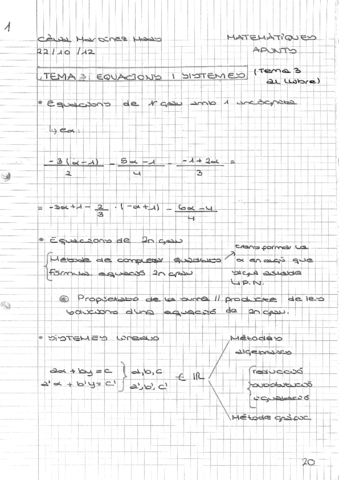 1
MATEMÀTIQUES
22/10/12
APUNTS
TEMA 3 EQUACIONS I SISTEMES
(Tema 3
al llibre)
• Equacions de 1r grau amb 1 incògnita
↳ ex:
-3(x-1)/2 - 5x-1/4 - -1+2x/3 =
= -3x+1 - 2/3 · (-x+1) - 6x-4/4
• Equacions de 2n grau
transformar la
Mètode de completar quadrats
x en algo que
fórmula equació 2n grau
↳ P.N.
Propietats de la suma // producte de les
solucions d'una equació de 2n grau.
• SISTEMES LINEALS
Mètodes
algebraics
ax + by = c } a, b, c
a'x + b'y = c' } a', b', c'
∈ ℝ
reducció
substitució
igualació
Mètode gràfic
20